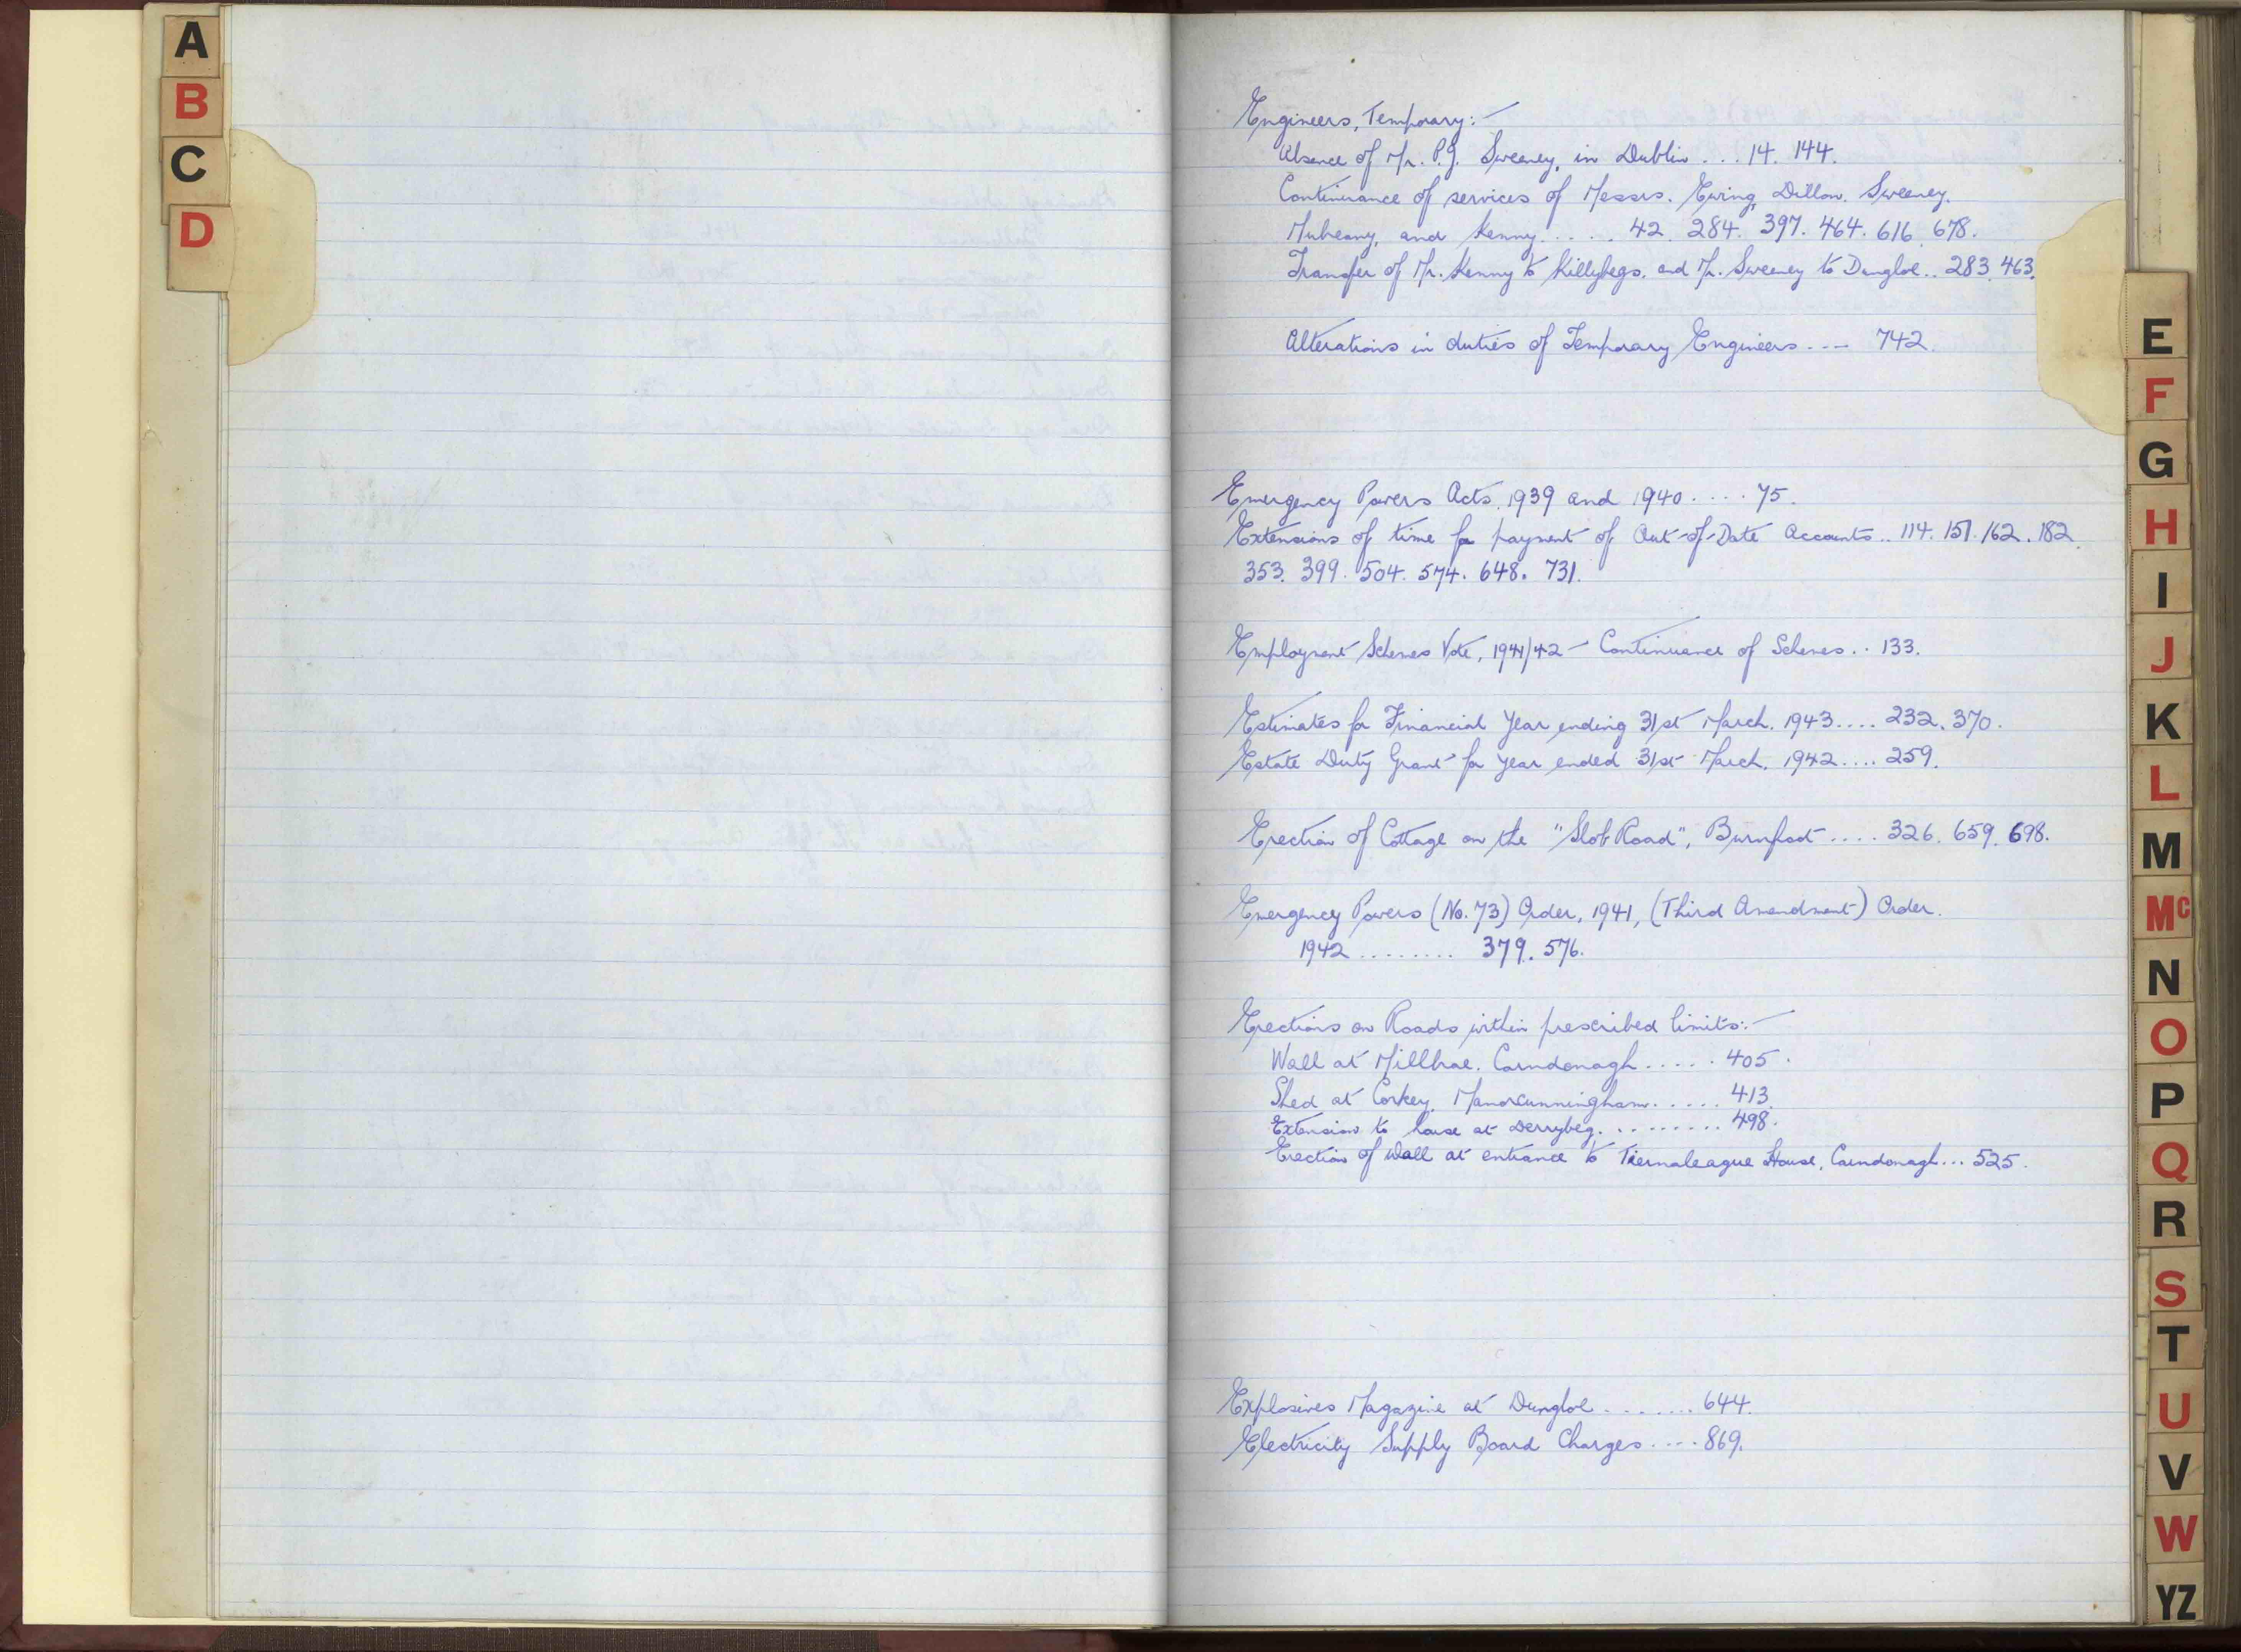 A
B
C
D
Engineers, Temporary:-
Absence of Mr. P.J. Sweeney, in Dublin ... 14. 144.
Continuance of services of Messrs. Ewing, Dillon. Sweeney.
and Kenny..... 42. 284. 397. 464. 616. 678.
Transfer of Mr. Kenny to Killybegs. and Mr. Sweeney to Dungloe.. 283. 463.
Alterations in duties of Temporary Engineers.... 742.
Emergency Powers Acts. 1939 and 1940.... 75.
Extensions of time for payment of Out-of-Date Accounts.. 114. 151. 162. 182.
353. 399. 504. 574. 648. 731.
Employment Schemes Vote, 1941/42 - Continuance of Schemes.. 133.
Estimates for Financial Year ending 31st March. 1943.... 232. 370.
Estate Duty Grant for year ended 31st March. 1942.... 259.
Erection of Cottage on the "Slob Road", Burnfoot.... 326. 659. 698.
Emergency Powers (No. 73) Order, 1941, (Third Amendment) Order.
1942......... 379. 576.
Erections on Roads within prescribed limits:-
Wall at Millbrae. Carndonagh..... 405.
Shed at Corkey. Manorcunningham..... 413.
Extension to house at Derrybeg.......... 498.
Erection of Wall at entrance to Tiernaleague House, Carndonagh... 525.
Explosives Magazine at Dungloe........ 644.
Electricity Supply Board Charges.... 869.
E
F
G
H
I
J
K
L
M
Mc
N
O
P
Q
R
S
T
U
V
W
YZ